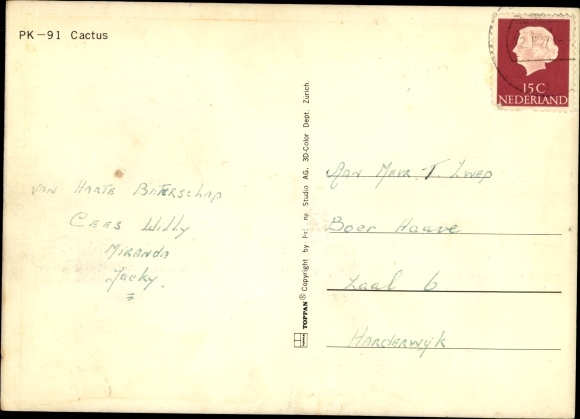 PK-91 Cactus
15C
NEDERLAND
van Harte Beterschap
Cees Willy
Miranda
Jacky.
TOPPAN ® Copyright by Studio AG. 3D-Color Dept. Zürich.
Aan Mevr. T. Zwep
Boer Haave
Zaal 6
Harderwyk